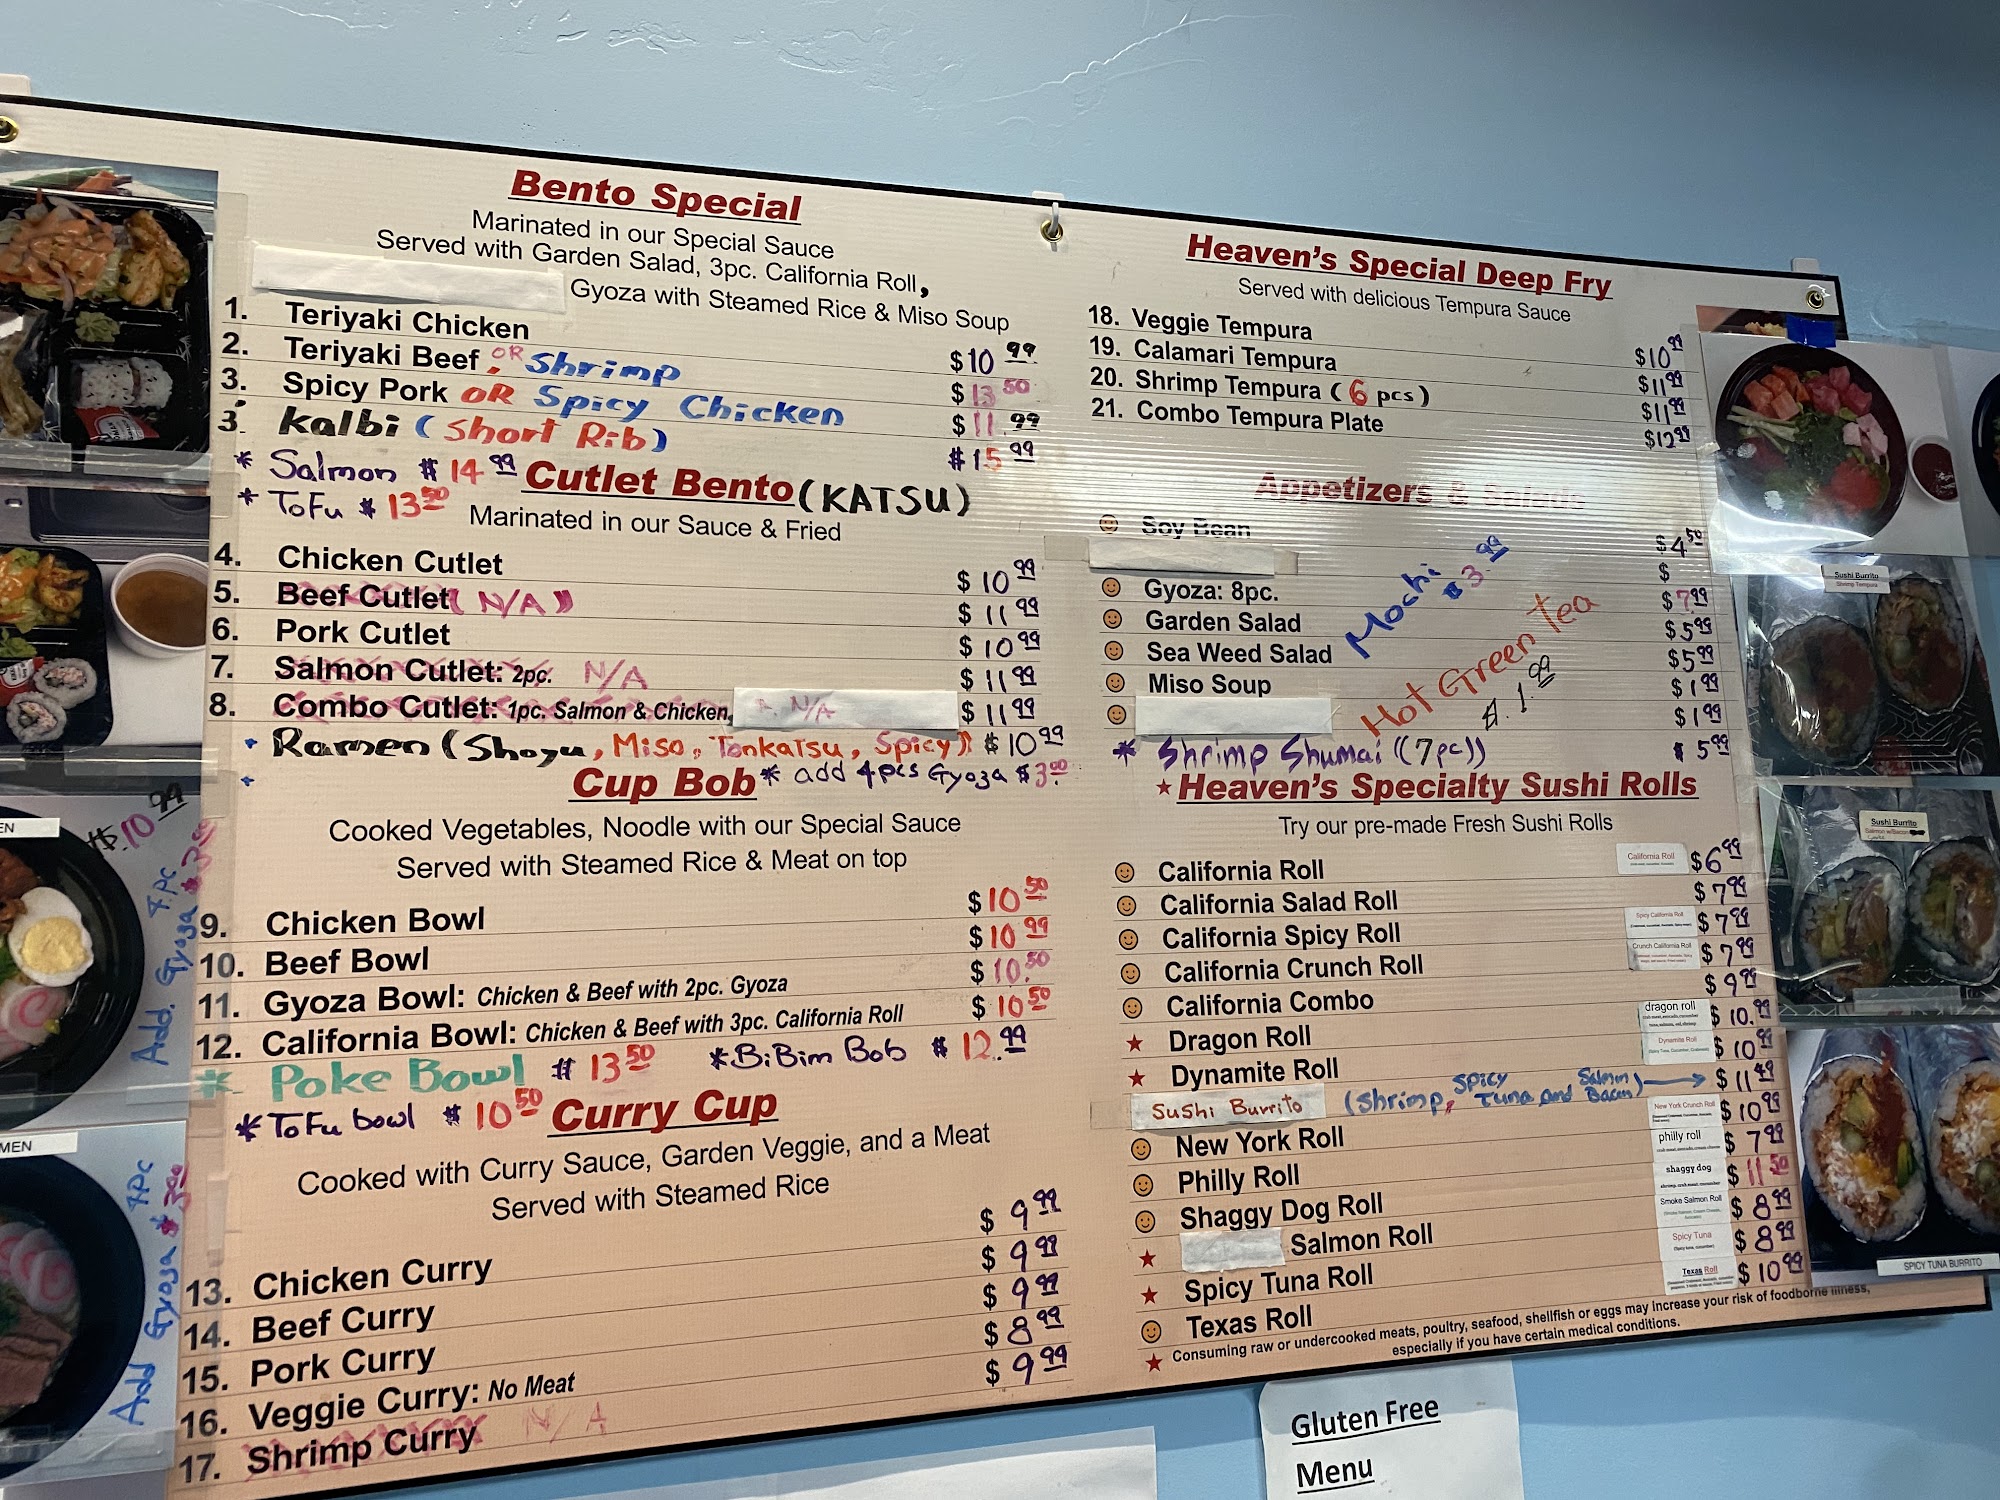 Bento Special
Marinated in our Special Sauce
Served with Garden Salad, 3pc. California Roll,
Gyoza with Steamed Rice & Miso Soup
1. Teriyaki Chicken $10 99
2. Teriyaki Beef, OR Shrimp $13 50
3. Spicy Pork OR Spicy Chicken $11 99
3. Kalbi (Short Rib) $15 99
* Salmon $14 99
* ToFu $13 50
Cutlet Bento (KATSU)
Marinated in our Sauce & Fried
4. Chicken Cutlet $10 99
5. Beef Cutlet (N/A) $11 99
6. Pork Cutlet $10 99
7. Salmon Cutlet: 2pc. N/A $11 99
8. Combo Cutlet: 1pc. Salmon & Chicken, N/A $11 99
Ramen (Shoyu, Miso, Tonkatsu, Spicy) $10 99
* add 4pcs Gyoza $3.00
Cup Bob
Cooked Vegetables, Noodle with our Special Sauce
Served with Steamed Rice & Meat on top
9. Chicken Bowl $10 50
10. Beef Bowl $10 99
11. Gyoza Bowl: Chicken & Beef with 2pc. Gyoza $10.50
12. California Bowl: Chicken & Beef with 3pc. California Roll $10 50
* Poke Bowl $13 50 *BiBim Bob $12.99
* ToFu bowl $10 50
Curry Cup
Cooked with Curry Sauce, Garden Veggie, and a Meat
Served with Steamed Rice
13. Chicken Curry $9 99
14. Beef Curry $9 99
15. Pork Curry $9 99
16. Veggie Curry: No Meat $8 99
17. Shrimp Curry N/A $9 99
Heaven's Special Deep Fry
Served with delicious Tempura Sauce
18. Veggie Tempura $10 99
19. Calamari Tempura $11 99
20. Shrimp Tempura (6 pcs) $11 99
21. Combo Tempura Plate $12 99
Appetizers & Salads
Soy Bean $4 50
$
Gyoza: 8pc. $7 99
Garden Salad $5 99
Sea Weed Salad $5 99
Miso Soup $1 99
$1 99
* Shrimp Shumai (7pc) $5 99
Mochi $3.99
Hot Green Tea
$1.99
★Heaven's Specialty Sushi Rolls
Try our pre-made Fresh Sushi Rolls
California Roll California Roll $6 99
California Salad Roll $7 99
California Spicy Roll Spicy California Roll $7 99
California Crunch Roll Crunch California Roll $7 99
California Combo $9 99
★ Dragon Roll dragon roll $10.99
★ Dynamite Roll Dynamite Roll $10 99
Sushi Burrito (Shrimp, Spicy Tuna and Salmon Bacon) $11 49
New York Roll New York Crunch Roll $10 99
Philly Roll philly roll $7 99
Shaggy Dog Roll shaggy dog $11 50
★ Salmon Roll Smoke Salmon Roll $8 99
★ Spicy Tuna Roll Spicy Tuna $8 99
Texas Roll Texas Roll $10 99
★ Consuming raw or undercooked meats, poultry, seafood, shellfish or eggs may increase your risk of foodborne illness,
especially if you have certain medical conditions.
Gluten Free
Menu
$10 99
Add. 4.PC Gyoza $3 00
MEN
Add 4PC Gyoza $3 00
Sushi Burrito
Shrimp Tempura
Sushi Burrito
SPICY TUNA BURRITO